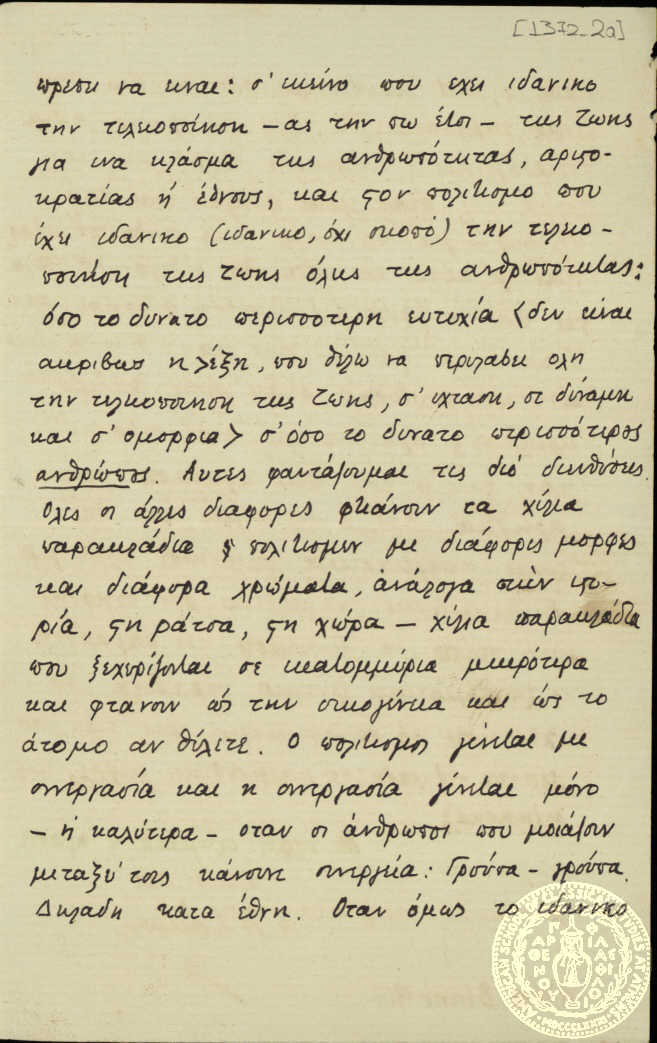 [1372-2a]
πρεπει να ειναι: σ' εκείνο που εχει ιδανικο
την τελειοποίηση – ας την πω έτσι – της ζωης
για ενα κλάσμα της ανθρωπότητας, αριστο-
κρατίας ή έθνους, και στον πολιτισμο που
έχει ιδανικο (ιδανικο, όχι σκοπό) την τελειο-
ποιηση της ζωης όλης της ανθρωπότητας:
όσο το δυνατο περισσοτερη ευτυχία < δεν είναι
ακριβως η λέξη, που θέλω να περιλαβει ολη
την τελειοποιηση της ζωης, σ' εχταση, σε δύναμη
και σ' ομορφια > σ' όσο το δυνατο περισσότερους
ανθρώπους. Αυτες φαντάζουμαι τις διό διευθύνσεις.
Ολες οι άλλες διαφορες φκιάνουν τα χίλια
παρακλάδια πολιτισμων με διάφορες μορφες
και διάφορα χρώματα, ανάλογα στην ιστο-
ρία, στη ράτσα, στη χώρα – χίλια παρακλάδια
που ξεχωρίζονται σε εκατομμύρια μικρότερα
και φτανουν ώς την οικογένεια και ώς το
άτομο αν θέλετε. Ο πολιτισμος γίνεται με
συνεργασία και η συνεργασία γίνεται μόνο
– ή καλύτερα – οταν οι άνθρωποι που μοιάζουν
μεταξύ τους κάνουνε συνεργεία: Γρούπα – γρούπα.
Δηλαδη κατα έθνη. Οταν όμως το ιδανικο
AMERICAN SCHOOL OF CLASSICAL STUDIES AT ATHENS
ΠΑΡΘΕΝΟΥ ΦΙΛΑΣ ΦΙΛΟΙ
MDCCCLXXXI